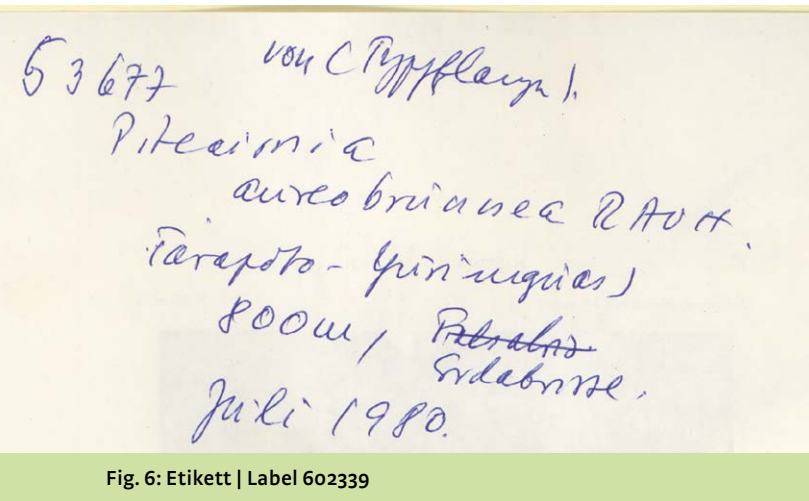 53677 von (Typpflanze).
Pitcairnia
aureobrunnea RAUH.
Tarapoto - Yurimaguas)
800m, Felsabris
Erdabrisse.
Juli 1980.
Fig. 6: Etikett | Label 602339